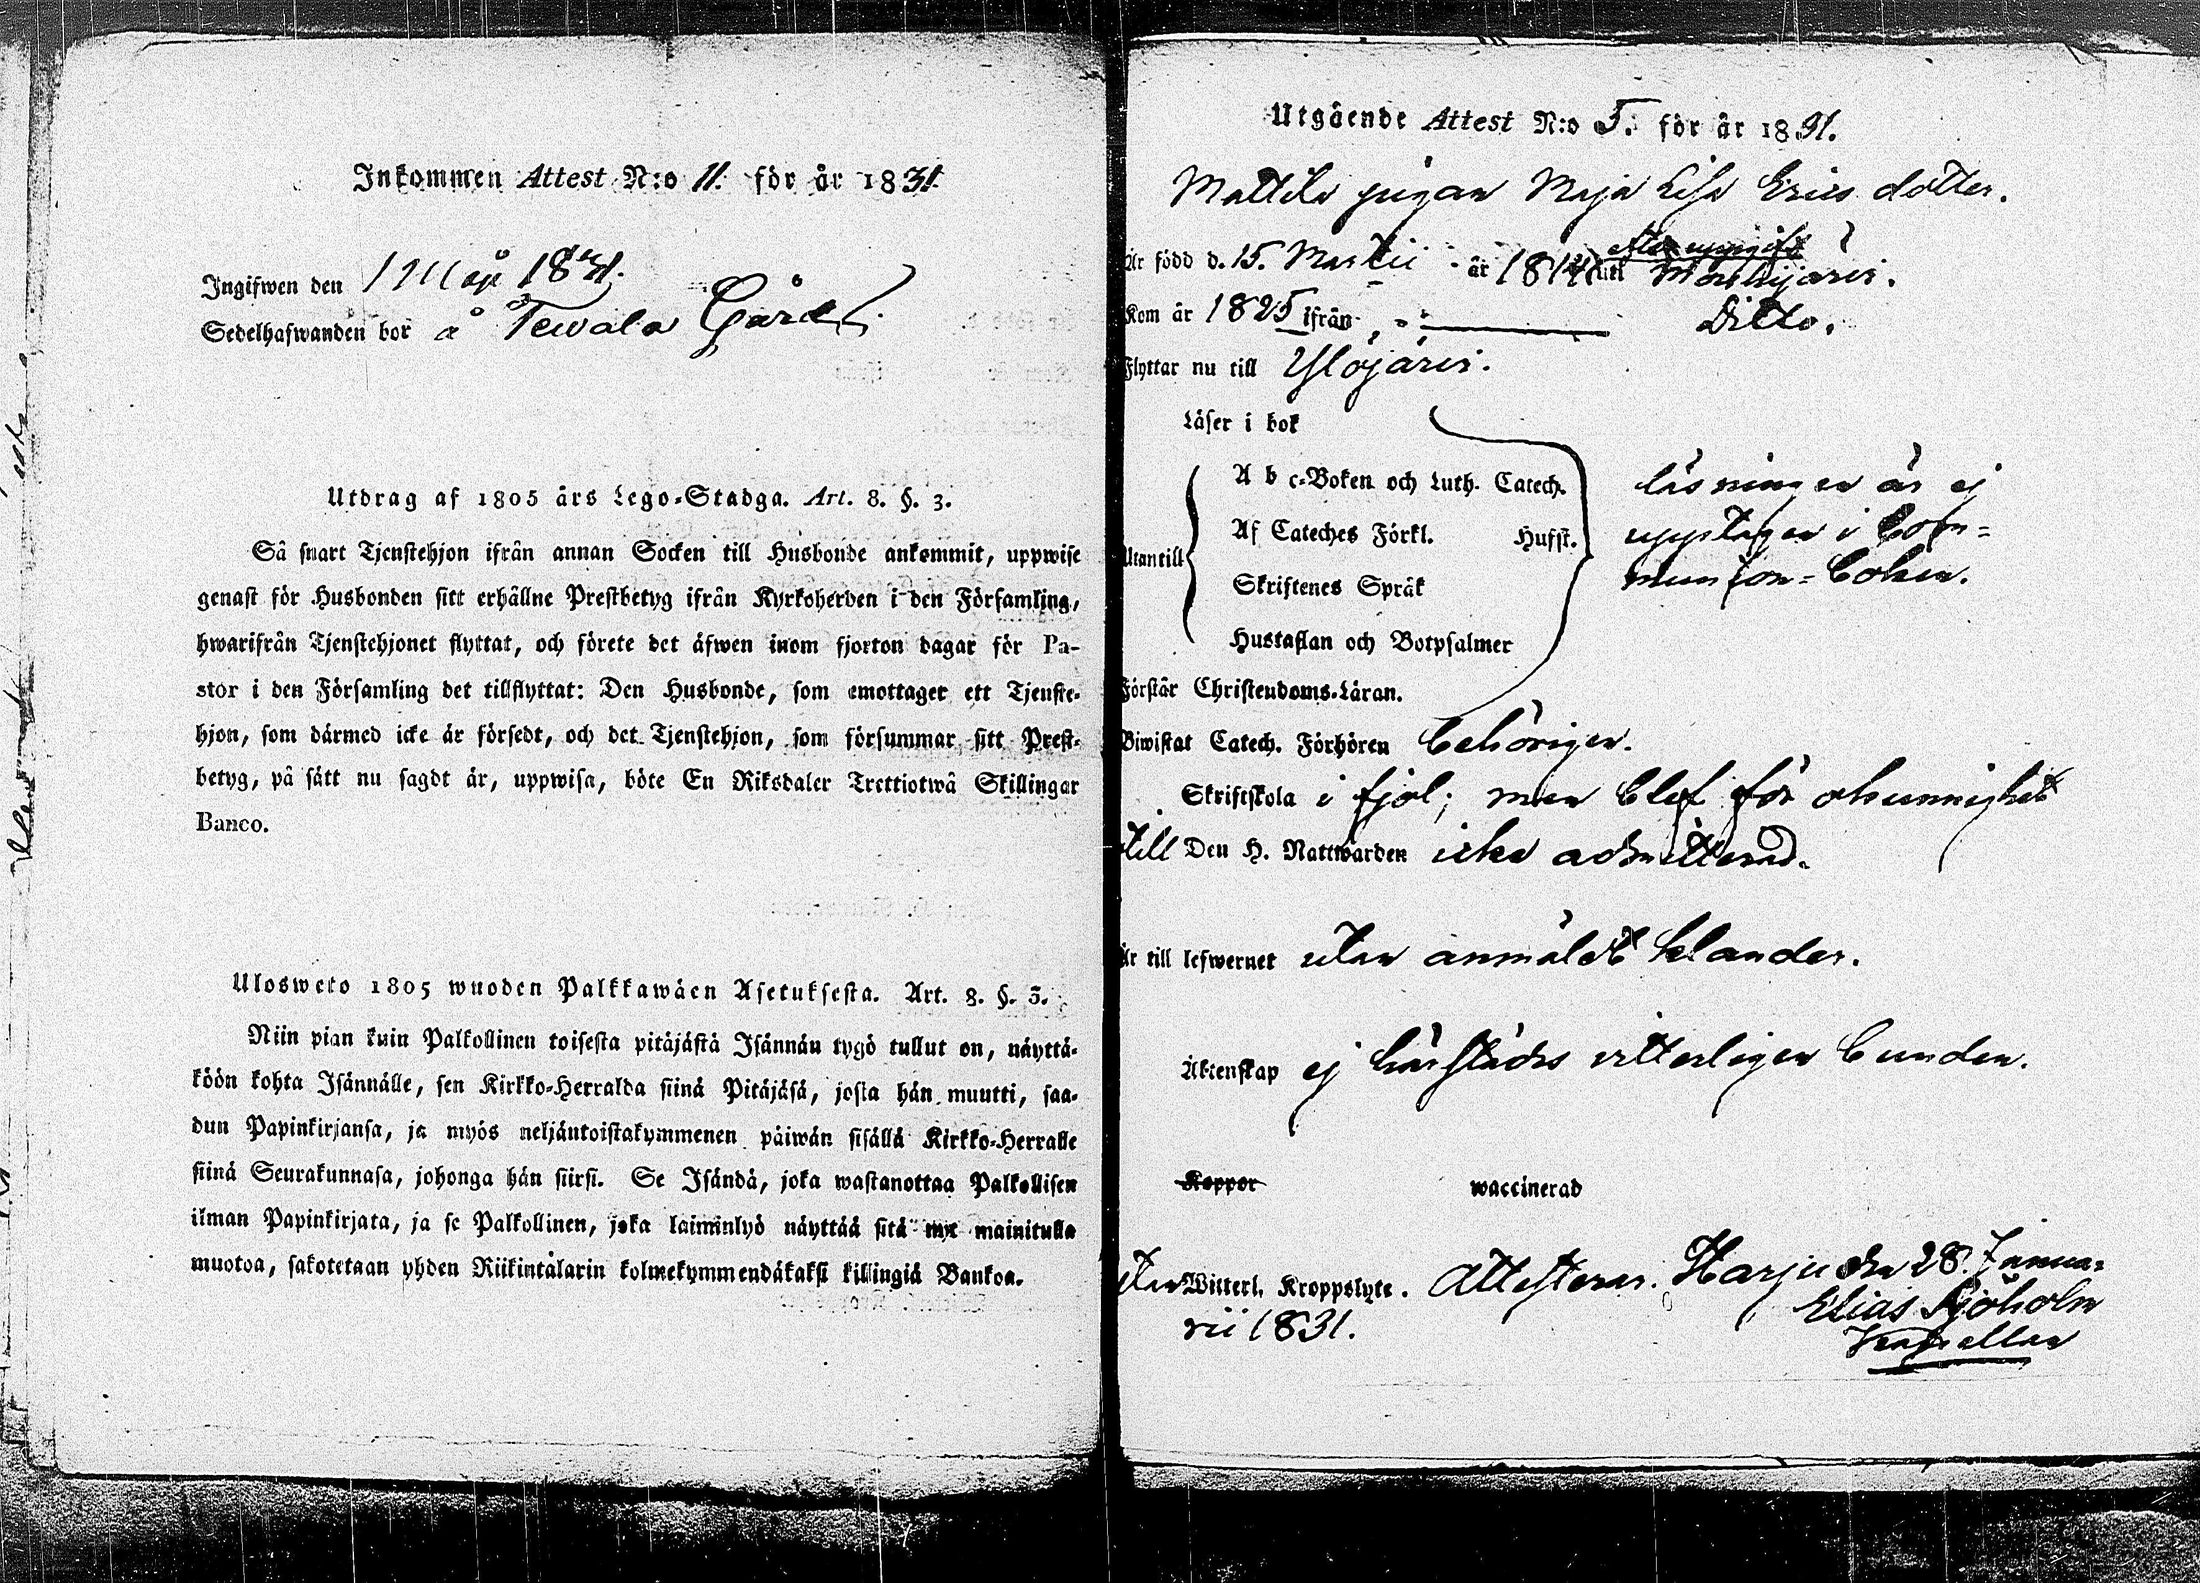 Inkommen Attest N:o 11. för år 1831.
Ingifwen den 1 Maji 1831.
Sedelhafwanden bor å Tewala Gård.
Utdrag af 1805 års Lego-Stadga. Art. 8. §. 3.
Så snart Tjenstehjon ifrån annan Socken till Husbonde ankommit, uppwise
genast för Husbonden sitt erhållne Prestbetyg ifrån Kyrkoherden i den Församling,
hwarifrån Tjenstehjonet flyttat, och förete det äfwen inom fjorton dagar för Pa-
stor i den Församling det tillflyttat: Den Husbonde, som emottager ett Tjenste-
hjon, som därmed icke är försedt, och det Tjenstehjon, som försummar sitt Prest-
betyg, på sätt nu sagdt är, uppwisa, böte En Riksdaler Trettiotwå Skillingar
Banco.
Ulosweto 1805 wuoden Palkkawäen Asetuksesta. Art. 8. §. 3.
Niin pian kuin Palkollinen toisesta pitäjästä Isännän tygö tullut on, näyttä-
köön kohta Isännälle, sen Kirkko-Herralda siinä Pitäjäsä, josta hän muutti, saa-
dun Papinkirjansa, ja myös neljäntoistakymmenen päiwän sisällä Kirkko-Herralle
siinä Seurakunnasa, johonga hän siirsi. Se Isändä, joka wastanottaa Palkollisen
ilman Papinkirjata, ja se Palkollinen, joka laiminlyö näyttää sitä nyt mainitulla
muotoa, sakotetaan yhden Riikintalarin kolmekymmendäkaksi killingiä Bankoa.
Utgående Attest N:o 5. för år 1831.
Mattila pigan Maja Lisa Erics dotter.
Är född d. 15. Martii år 1814 uti efter uppgift Mouhijärvi.
Kom år 1825 ifrån Ditto.
Flyttar nu till Ylöjärvi.
Läser i bok
A b c-Boken och Luth. Catech.
Af Cateches Förkl. Husst.
Utantill
Skriftenes Språk
Hustaflan och Botpsalmer
läsningen är ej
upptagen i Com-
munion-boken.
Förstår Christendoms-Läran.
Biwistat Catech. Förhören behörigen.
Skriftskola i fjol; men blef för okunnighet
till Den H. Nattwarden icke admitterad.
Är till lefwernet utan anmäldt klander.
Äktenskap ej härstädes vitterligen bunden.
Koppor waccinerad
utan Witterl. Kroppslyte. Attesterar. Harju den 28. Janua-
rii 1831.
Elias Sjöholm
Kapellan